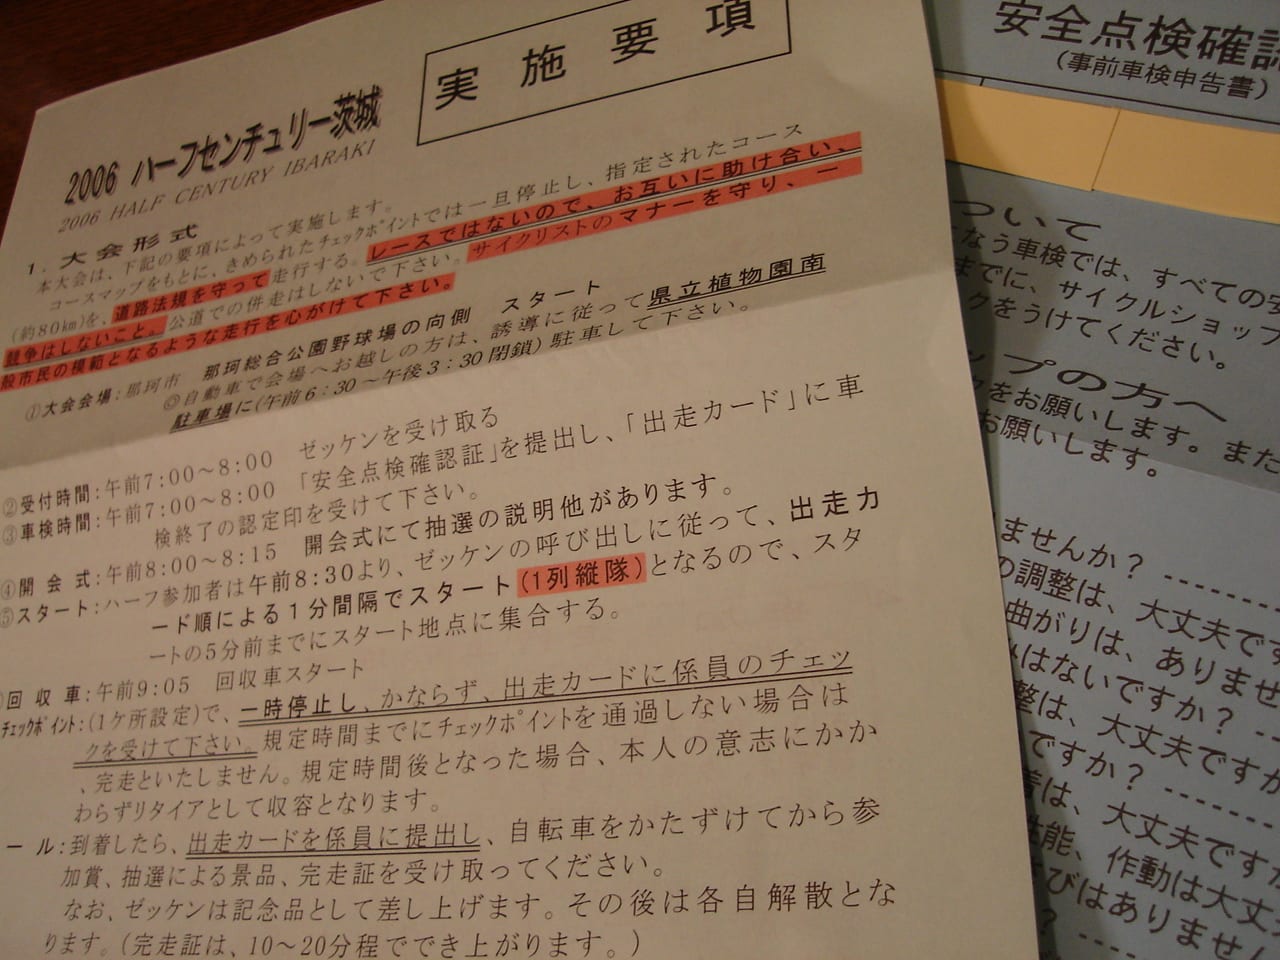 実施要項
2006 ハーフセンチュリー茨城
2006 HALF CENTURY IBARAKI
1. 大会形式
本大会は、下記の要項によって実施します。
コースマップをもとに、きめられたチェックポイントでは一旦停止し、指定されたコース
(約80km)を、道路法規を守って走行する。レースではないので、お互いに助け合い、
競争はしないこと。公道での併走はしないで下さい。サイクリストのマナーを守り、一
般市民の模範となるような走行を心がけて下さい。
①大会会場:那珂市 那珂総合公園野球場の向側 スタート
◎自動車で会場へお越しの方は、誘導に従って県立植物園南
駐車場に(午前6:30～午後3:30閉鎖)駐車して下さい。
②受付時間:午前7:00～8:00 ゼッケンを受け取る
③車検時間:午前7:00～8:00 「安全点検確認証」を提出し、「出走カード」に車
検終了の認定印を受けて下さい。
④開会式:午前8:00～8:15 開会式にて抽選の説明他があります。
⑤スタート:ハーフ参加者は午前8:30より、ゼッケンの呼び出しに従って、出走カ
ード順による1分間隔でスタート(1列縦隊)となるので、スタ
ートの5分前までにスタート地点に集合する。
回収車:午前9:05 回収車スタート
チェックポイント:(1ケ所設定)で、一時停止し、かならず、出走カードに係員のチェッ
クを受けて下さい。規定時間までにチェックポイントを通過しない場合は
、完走といたしません。規定時間後となった場合、本人の意志にかか
わらずリタイアとして収容となります。
ール:到着したら、出走カードを係員に提出し、自転車をかたずけてから参
加賞、抽選による景品、完走証を受け取ってください。
なお、ゼッケンは記念品として差し上げます。その後は各自解散とな
ります。(完走証は、10～20分程ででき上がります。)
安全点検確認
(事前車検申告書)
ついて
なう車検では、すべての安
までに、サイクルショップ
クをうけてください。
ップの方へ
クをお願いします。また
お願いします。
ませんか? --------
の調整は、大丈夫です
曲がりは、ありませ
はないですか? --
整は、大丈夫ですか
ですか? --------
着は、大丈夫ですか
性能、作動は大丈
びはありません
? -----